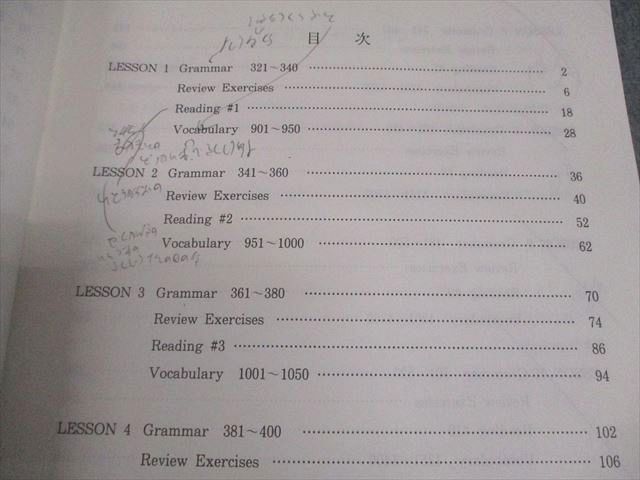 目 次
LESSON 1 Grammar 321～340 ………… 2
Review Exercises ………… 6
Reading #1 ………… 18
Vocabulary 901～950 ………… 28
LESSON 2 Grammar 341～360 ………… 36
Review Exercises ………… 40
Reading #2 ………… 52
Vocabulary 951～1000 ………… 62
LESSON 3 Grammar 361～380 ………… 70
Review Exercises ………… 74
Reading #3 ………… 86
Vocabulary 1001～1050 ………… 94
LESSON 4 Grammar 381～400 ………… 102
Review Exercises ………… 106